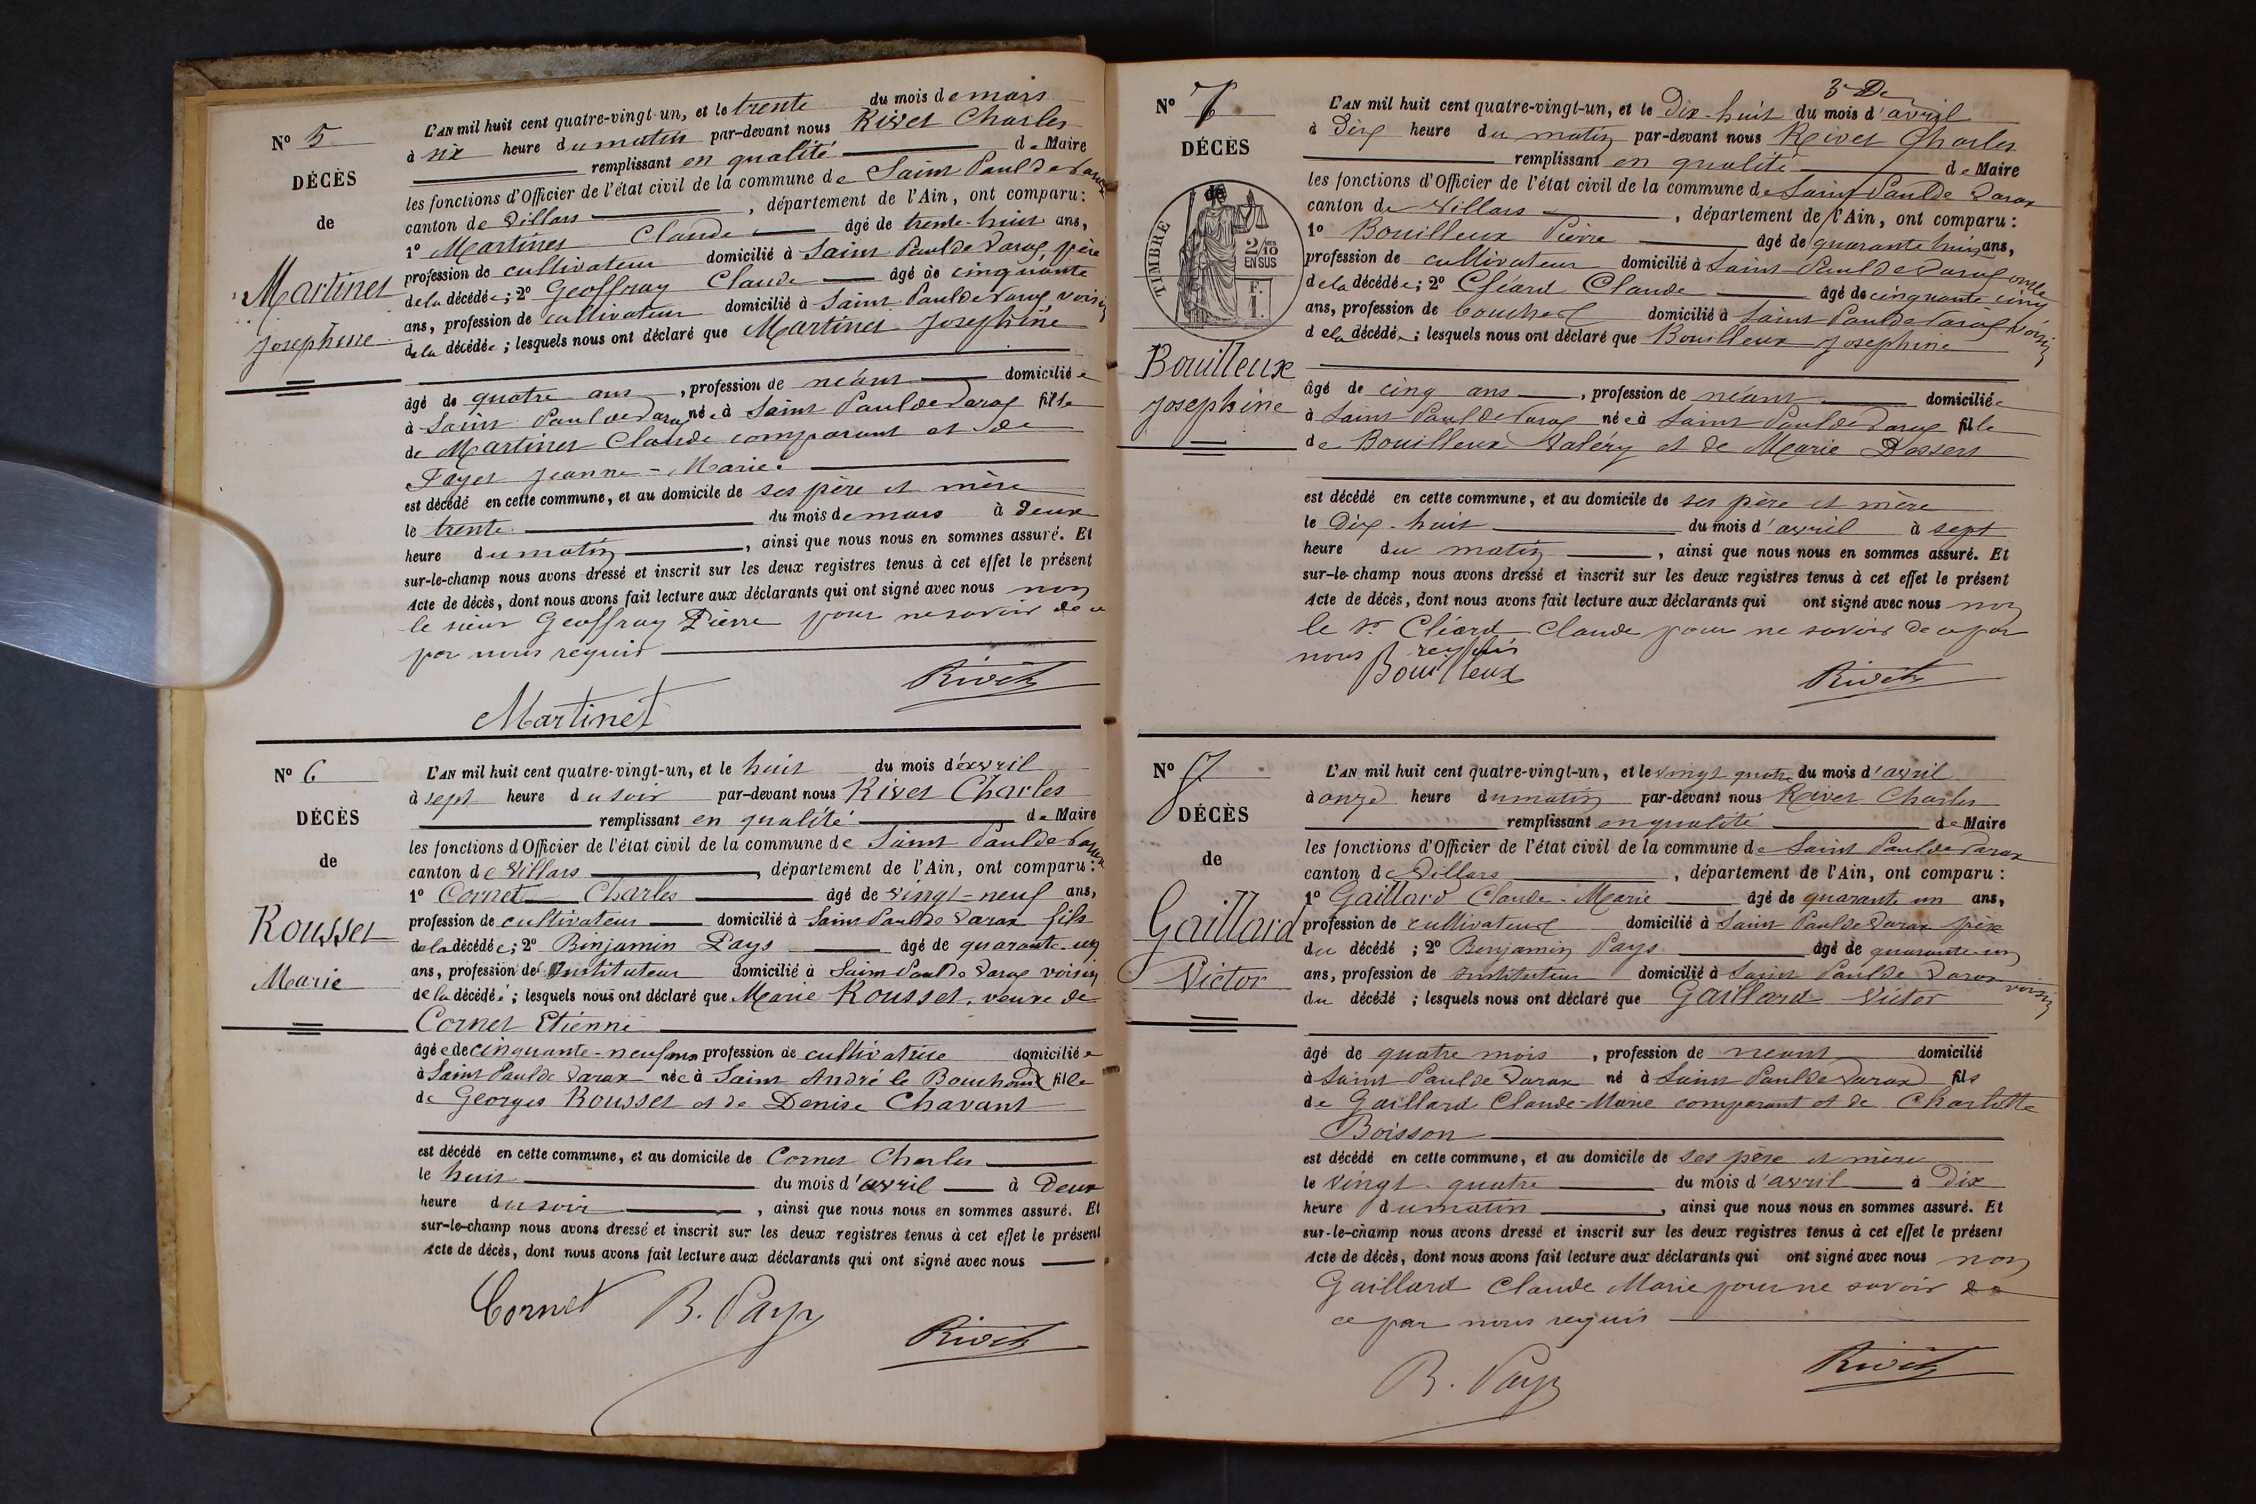 Nº 5
DÉCÈS
de
Martinet
Josephine
L'AN mil huit cent quatre-vingt-un, et le trente du mois de mars
à six heure du matin par-devant nous Rivet Charles
remplissant en qualité de Maire
les fonctions d'Officier de l'état civil de la commune de Saint Paul de Varax
canton de Villars, département de l'Ain, ont comparu:
1º Martinet Claude âgé de trente-huit ans,
profession de cultivateur domicilié à Saint Paul de Varax, père
de la décédée; 2º Geoffray Claude âgé de cinquante
ans, profession de cultivateur domicilié à Saint Paul de Varax voisin
de la décédée; lesquels nous ont déclaré que Martinet Josephine
âgé de quatre ans, profession de néant domiciliée
à Saint Paul de Varax née à Saint Paul de Varax fille
de Martinet Claude comparant et de
Jeanne-Marie.
est décédé en cette commune, et au domicile de ses père et mère
le trente du mois de mars à deux
heure du matin, ainsi que nous nous en sommes assuré. Et
sur-le-champ nous avons dressé et inscrit sur les deux registres tenus à cet effet le présent
Acte de décès, dont nous avons fait lecture aux déclarants qui ont signé avec nous non
le sieur Geoffray Pierre pour ne savoir de ce
par nous requis
Martinet Rivet
Nº 6
DÉCÈS
de
Rousset
Marie
L'AN mil huit cent quatre-vingt-un, et le huit du mois d'avril
à sept heure du soir par-devant nous Rivet Charles
remplissant en qualité de Maire
les fonctions d'Officier de l'état civil de la commune de Saint Paul de Varax
canton de Villars, département de l'Ain, ont comparu:
1º Cornet Charles âgé de vingt-neuf ans,
profession de cultivateur domicilié à Saint Paul de Varax fils
de la décédée; 2º Binjamin Pays âgé de quarante-un
ans, profession de Instituteur domicilié à Saint Paul de Varax voisin
de la décédée; lesquels nous ont déclaré que Marie Rousset, veuve de
Cornet Etienne
âgée de cinquante-neuf ans profession de cultivatrice domiciliée
à Saint Paul de Varax née à Saint André le Bouchoux fille
de Georges Rousset et de Denise Chavant
est décédé en cette commune, et au domicile de Cornet Charles
le huit du mois d'avril à Deux
heure du soir, ainsi que nous nous en sommes assuré. Et
sur-le-champ nous avons dressé et inscrit sur les deux registres tenus à cet effet le présent
Acte de décès, dont nous avons fait lecture aux déclarants qui ont signé avec nous
Cornet B. Pays Rivet
3 De
Nº 7
DÉCÈS
de
TIMBRE
2/10
EN SUS
F.
1.
Bouilleux
Josephine
L'AN mil huit cent quatre-vingt-un, et le Dix-huit du mois d'avril
à Dix heure du matin par-devant nous Rivet Charles
remplissant en qualité de Maire
les fonctions d'Officier de l'état civil de la commune de Saint Paul de Varax
canton de Villars, département de l'Ain, ont comparu:
1º Bouilleux Pierre âgé de quarante huit ans,
profession de cultivateur domicilié à Saint Paul de Varax oncle
de la décédée; 2º Cléard Claude âgé de cinquante cinq
ans, profession de domicilié à Saint Paul de Varax voisin
de la décédée; lesquels nous ont déclaré que Bouilleux Josephine
âgé de cinq ans, profession de néant domiciliée
à Saint Paul de Varax née à Saint Paul de Varax fille
de Bouilleux Valéry et de Marie Dossert
est décédé en cette commune, et au domicile de ses père et mère
le Dix-huit du mois d'avril à sept
heure du matin, ainsi que nous nous en sommes assuré. Et
sur-le-champ nous avons dressé et inscrit sur les deux registres tenus à cet effet le présent
Acte de décès, dont nous avons fait lecture aux déclarants qui ont signé avec nous non
le Sr Cléard Claude pour ne savoir de ce par
nous requis
Bouilleux Rivet
Nº
DÉCÈS
de
Gaillard
Victor
L'AN mil huit cent quatre-vingt-un, et le vingt quatre du mois d'avril
à onze heure du matin par-devant nous Rivet Charles
remplissant en qualité de Maire
les fonctions d'Officier de l'état civil de la commune de Saint Paul de Varax
canton de Villars, département de l'Ain, ont comparu:
1º Gaillard Claude-Marie âgé de quarante un ans,
profession de cultivateur domicilié à Saint Paul de Varax père
du décédé; 2º Benjamin Pays âgé de quarante un
ans, profession de Instituteur domicilié à Saint Paul de Varax voisin
du décédé; lesquels nous ont déclaré que Gaillard Victor
âgé de quatre mois, profession de néant domicilié
à Saint Paul de Varax né à Saint Paul de Varax fils
de Gaillard Claude-Marie comparant et de Charlotte
Boisson
est décédé en cette commune, et au domicile de ses père et mère
le vingt quatre du mois d'avril à Dix
heure du matin, ainsi que nous nous en sommes assuré. Et
sur-le-champ nous avons dressé et inscrit sur les deux registres tenus à cet effet le présent
Acte de décès, dont nous avons fait lecture aux déclarants qui ont signé avec nous non
Gaillard Claude Marie pour ne savoir de
ce par nous requis
B. Pays Rivet